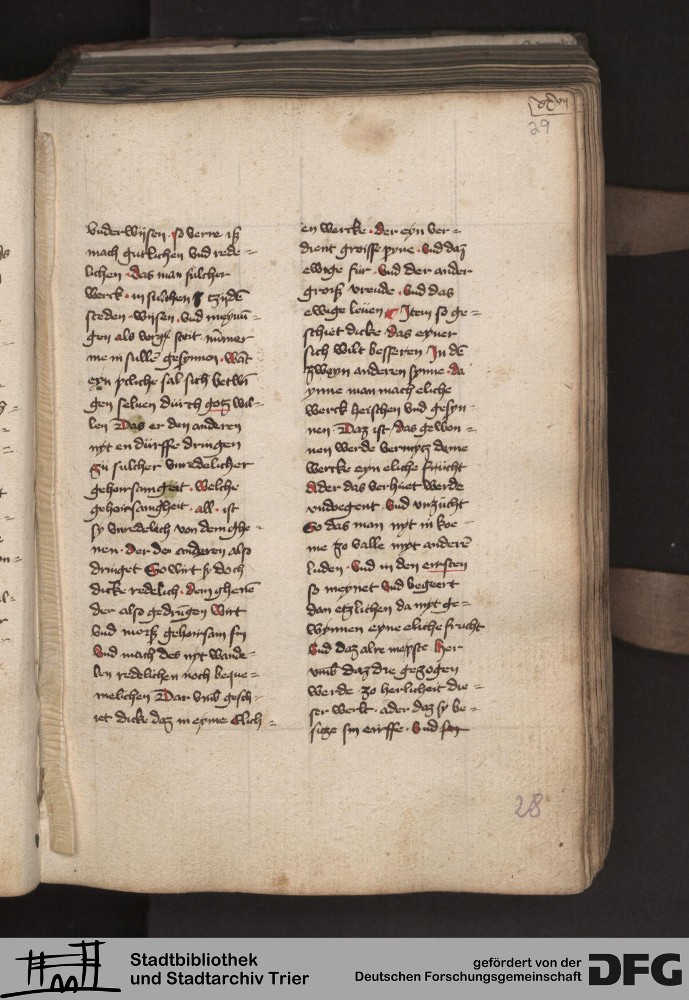 29
vnderwijsen · so verre iß
mach gutlichen vnd rede =
lichen · das man sulcher
werck · in sulchen tzijdē
steden · wijsen · vnd meynū =
gen als vorß steit · nūmer
me in sullē gesynnen · wāt
eyn ytliche sal sich betwī
gen seluen durch gotz wil =
len Das er den anderen
nyt en dürffe dringen
zü sulcher vnredelicher
gehoirsamgeit · welche
gehoirsamgheit · all · ist
sy vnredelich von dem ghe =
nen · der den anderen also
dringet So wirt sy doch
dicke redelich · dem ghenē
der also gedrungen wirt
vnd moiß gehoirsam sin
vnd mach des nyt wande =
len redelichen noch beque =
melichen Dar vmb gesch =
iet dicke daz in eyme Elich =
en wercke · der eyn ver =
dient groisse pyne · vnd daz
ewige für · vnd der ander
groiß vreude · vnd das
ewige leuen Item so ge =
schiet dicke · das eyner
sich wilt besseren In dē
zweyn anderen synne · da
ynne man mach eliche
werck heischen vnd gesyn =
nen · Daz ist · das gewon =
nen werde vermytz deme
wercke eyn eliche frücht
Ader das verhuet werde
vnduegent · vnd vnzücht
So das man nyt in koe =
me zo valle myt anderē
luden · vnd in den eirsten
so meynet vnd begeert
dan etzlichen da myt ge =
wynnen eyne eliche frucht
vnd daz alre meyste · her
vmb daz die gezogen
werde zo herlicheit die =
ser werlt · ader daz sy be =
sitze sin eirffe · vnd
28
Stadtbibliothek
und Stadtarchiv Trier
gefördert von der
Deutschen Forschungsgemeinschaft
DFG